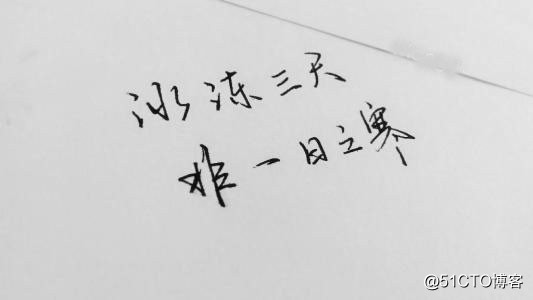 冰冻三天
非一日之寒
@51CTO博客